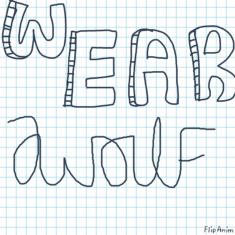 WEAR
a wolf
FlipAnim